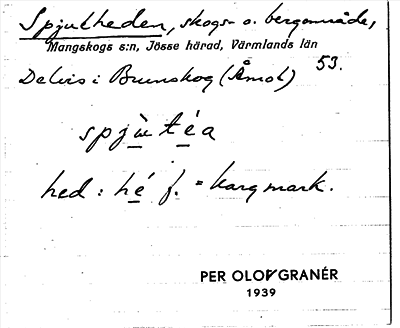 Spjutheden, skogs- o. bergområde,
Mangskogs s:n, Jösse härad, Värmlands län
53.
Delvis i Brunskog (Åmot)
spjùtéa
hed : hé f. = karg mark.
PER OLOF GRANÉR
1939